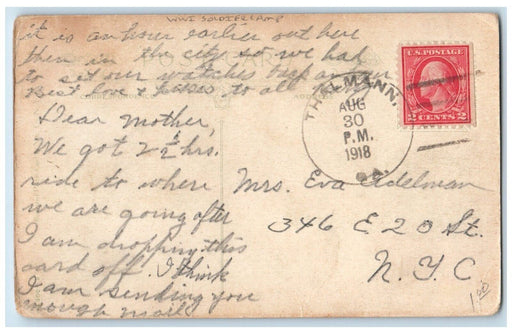 WWI SOLDIER CAMP
it is an hour earlier out here
then in the city so we had
to set our watches back an hour
Best love & kisses to all
Dear Mother,
We got 2 1/2 hrs.
ride to where
we are going after
I am dropping this
card off. I think
I am sending you
enough mail
U.S. POSTAGE
2 CENTS 2
THALMANN,
AUG
30
P.M.
1918
GA.
Mrs. Eva Adelman
346 E 20 St.
N.Y.C
1.00